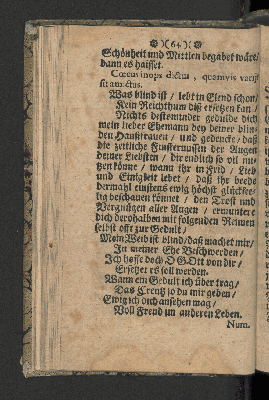 ):( 64 ):(
Schönheit und Mittlen begabet wäre/
dann es haisset.
Cœcus inops dictus, quamvis varijs
sit amictus.
Was blind ist / lebt in Elend schon/
Kein Reichthum diß ersetzen kan.
Nichts destominder gedulde dich
mein lieber Ehemann bey deiner blin-
den Haußfrauen / und gedencke / daß
die zeitliche Finsternussen der Augen
deiner Liebsten / dir endlich so vil nu-
tzen könne / wann ihr in Frid / Lieb
und Einigkeit lebet / daß ihr beede
dermahl einstens ewig höchst glückse-
lig beschauen könnet / den Trost und
Vergnügen aller Augen / ermuntere
dich derohalben mit folgenden Reimen
selbst offt zur Gedult /
Mein Weib ist blind / daß machet mir /
In meiner Ehe Beschwerden /
Ich hoffe doch O GOtt von dir /
Ersetzet es soll werden.
Wann ein Gedult ich über trag /
Das Creutz so du mir geben /
Ewig ich dich ansehen mag /
Voll Freud im anderen Leben.
Num.